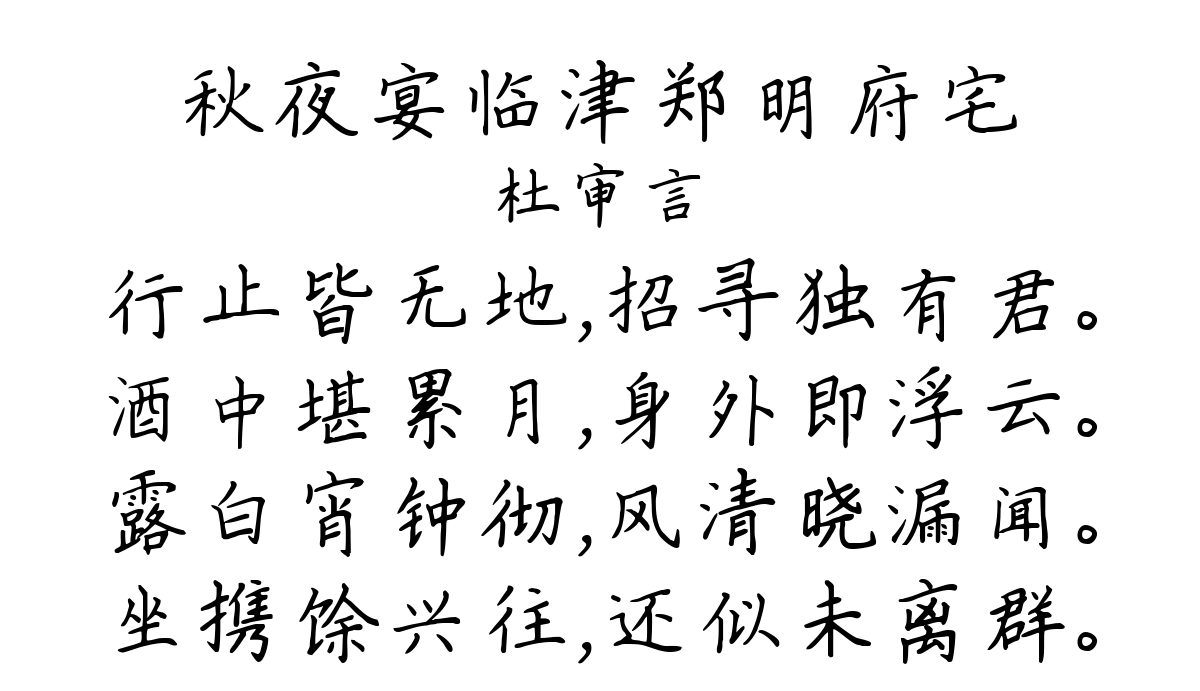 秋夜宴临津郑明府宅
杜审言
行止皆无地,招寻独有君。
酒中堪累月,身外即浮云。
露白宵钟彻,风清晓漏闻。
坐携馀兴往,还似未离群。